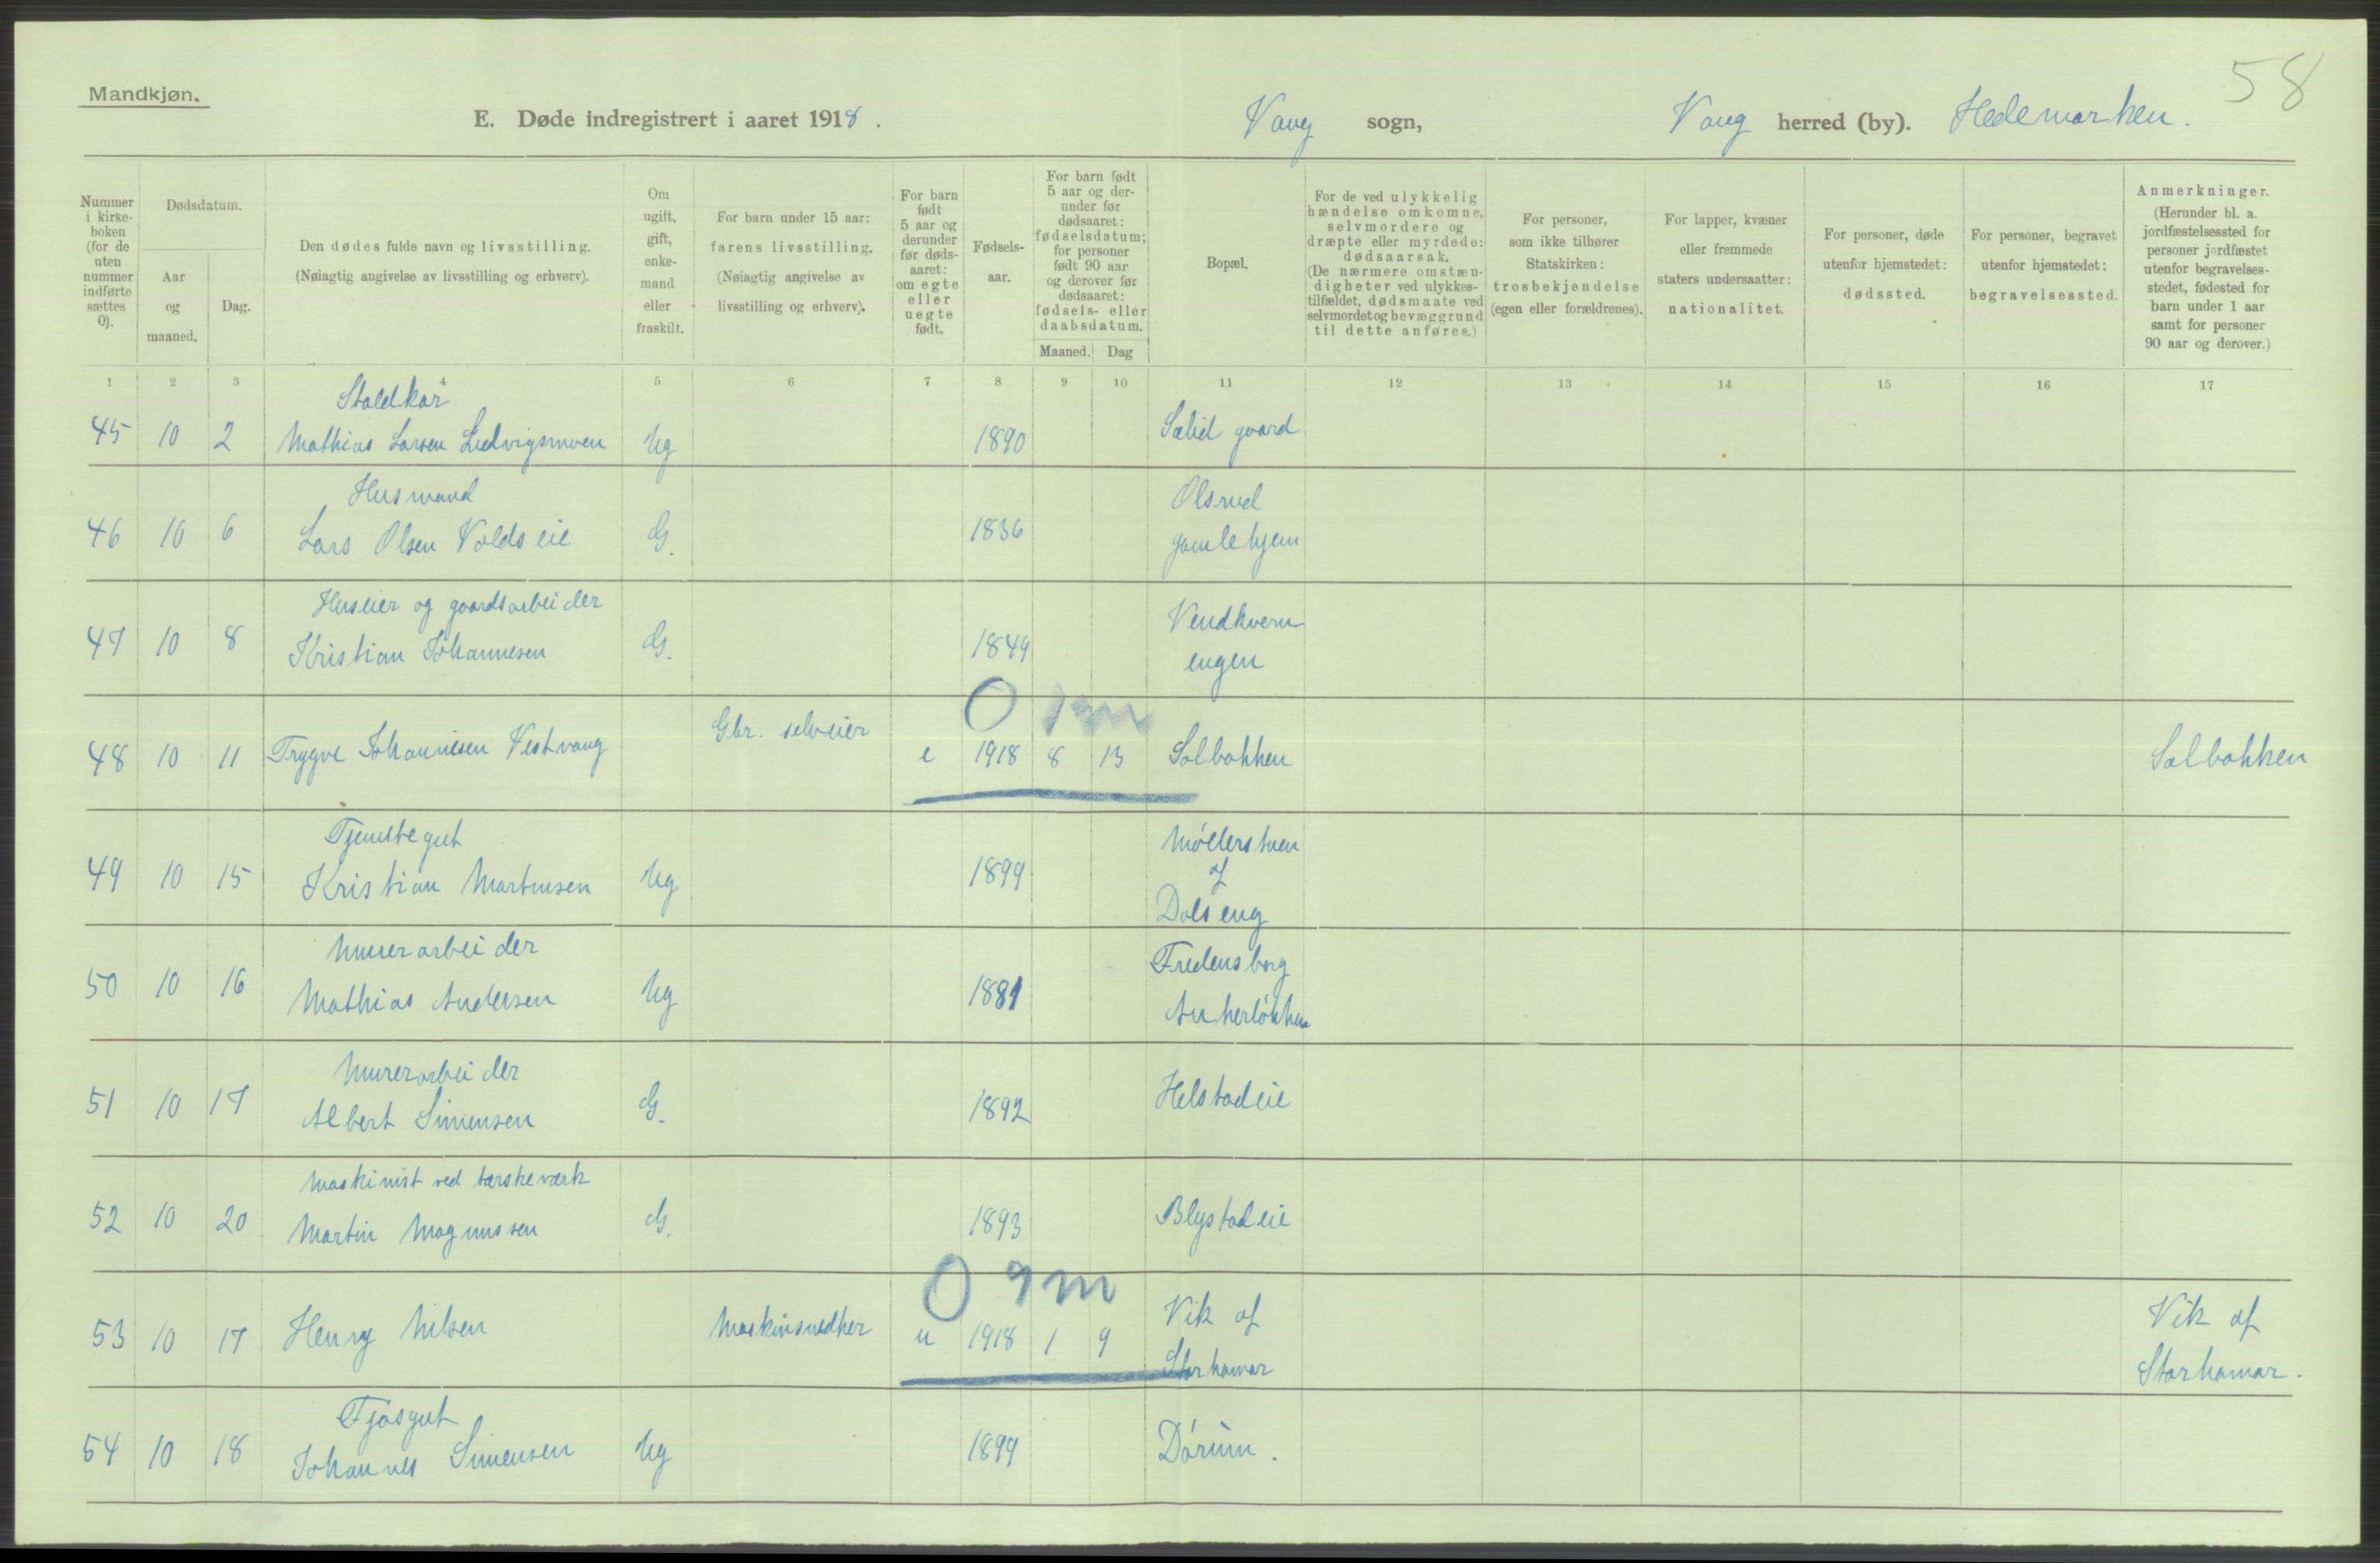 58
Mandkjøn.
E. Døde indregistrert i aaret 1918. Vang sogn, Vang herred (by). Hedemarken.
Nummer i kirke-boken (for de uten nummer indførte sættes 0).
Dødsdatum.
Aar og maaned.
Dag.
Den dødes fulde navn og livsstilling.
(Nøiagtig angivelse av livsstilling og erhverv).
Om ugift, gift, enke-mand eller fraskilt.
For barn under 15 aar: farens livsstilling.
(Nøiagtig angivelse av livsstilling og erhverv).
For barn født 5 aar og derunder før døds-aaret: om egte eller uegte født.
Fødsels-aar.
For barn født 5 aar og der-under før dødsaaret: fødselsdatum; for personer født 90 aar og derover før dødsaaret: fødsels- eller daabsdatum.
Maaned. Dag
Bopæl.
For de ved ulykkelig hændelse omkomne, selvmordere og dræpte eller myrdede: dødsaarsak.
(De nærmere omstæn-digheter ved ulykkes-tilfældet, dødsmaate ved selvmordet og bevæggrund til dette anføres.)
For personer, som ikke tilhører Statskirken: trosbekjendelse (egen eller forældrenes).
For lapper, kvæner eller fremmede staters undersaatter: nationalitet.
For personer, døde utenfor hjemstedet: dødssted.
For personer, begravet utenfor hjemstedet: begravelsessted.
Anmerkninger.
(Herunder bl. a. jordfæstelsessted for personer jordfæstet utenfor begravelses-stedet, fødested for barn under 1 aar samt for personer 90 aar og derover.)
1 2 3 4 5 6 7 8 9 10 11 12 13 14 15 16 17
Staldkar
45 10 2 Mathias Larsen Ludvigsmoen Ug 1890 Sælid gaard
Husmand Olsrud
46 10 6 Lars Olsen Voldseie G. 1836 gamlehjem
Huseier og gaardsarbeider Vendkvern
47 10 8 Kristian Johannesen G. 1849 engen
0 1m
Gbr. selveier
48 10 11 Trygve Johannesen Vestvang e 1918 8 13 Solbakken Solbakken
Tjenstegut Møllerstuen
49 10 15 Kristian Martinsen Ug 1899 af
Dolseng
Murerarbeider Fredensborg
50 10 16 Mathias Andersen Ug 1881 Ankerløkken
Murerarbeider
51 10 17 Albert Simensen G. 1892 Helstadeie
Maskinist ved tærskeværk
52 10 20 Martin Magnussen G. 1893 Blystadeie
0 9m
Vik af Vik af
53 10 17 Henry Nilsen Maskinsnedker u 1918 1 9 Storhamar Storhamar.
Fjøsgut
54 10 18 Johannes Simensen Ug 1899 Dørum.